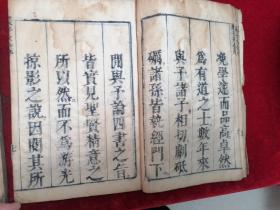 晚學達而品高卓然
為有道之士數年來
與予諸子相切劘砥
礪諸孫皆執經門下
間與予論四書之旨
皆實見聖賢精意之
所以然而不為游光
掠影之說因閱其所